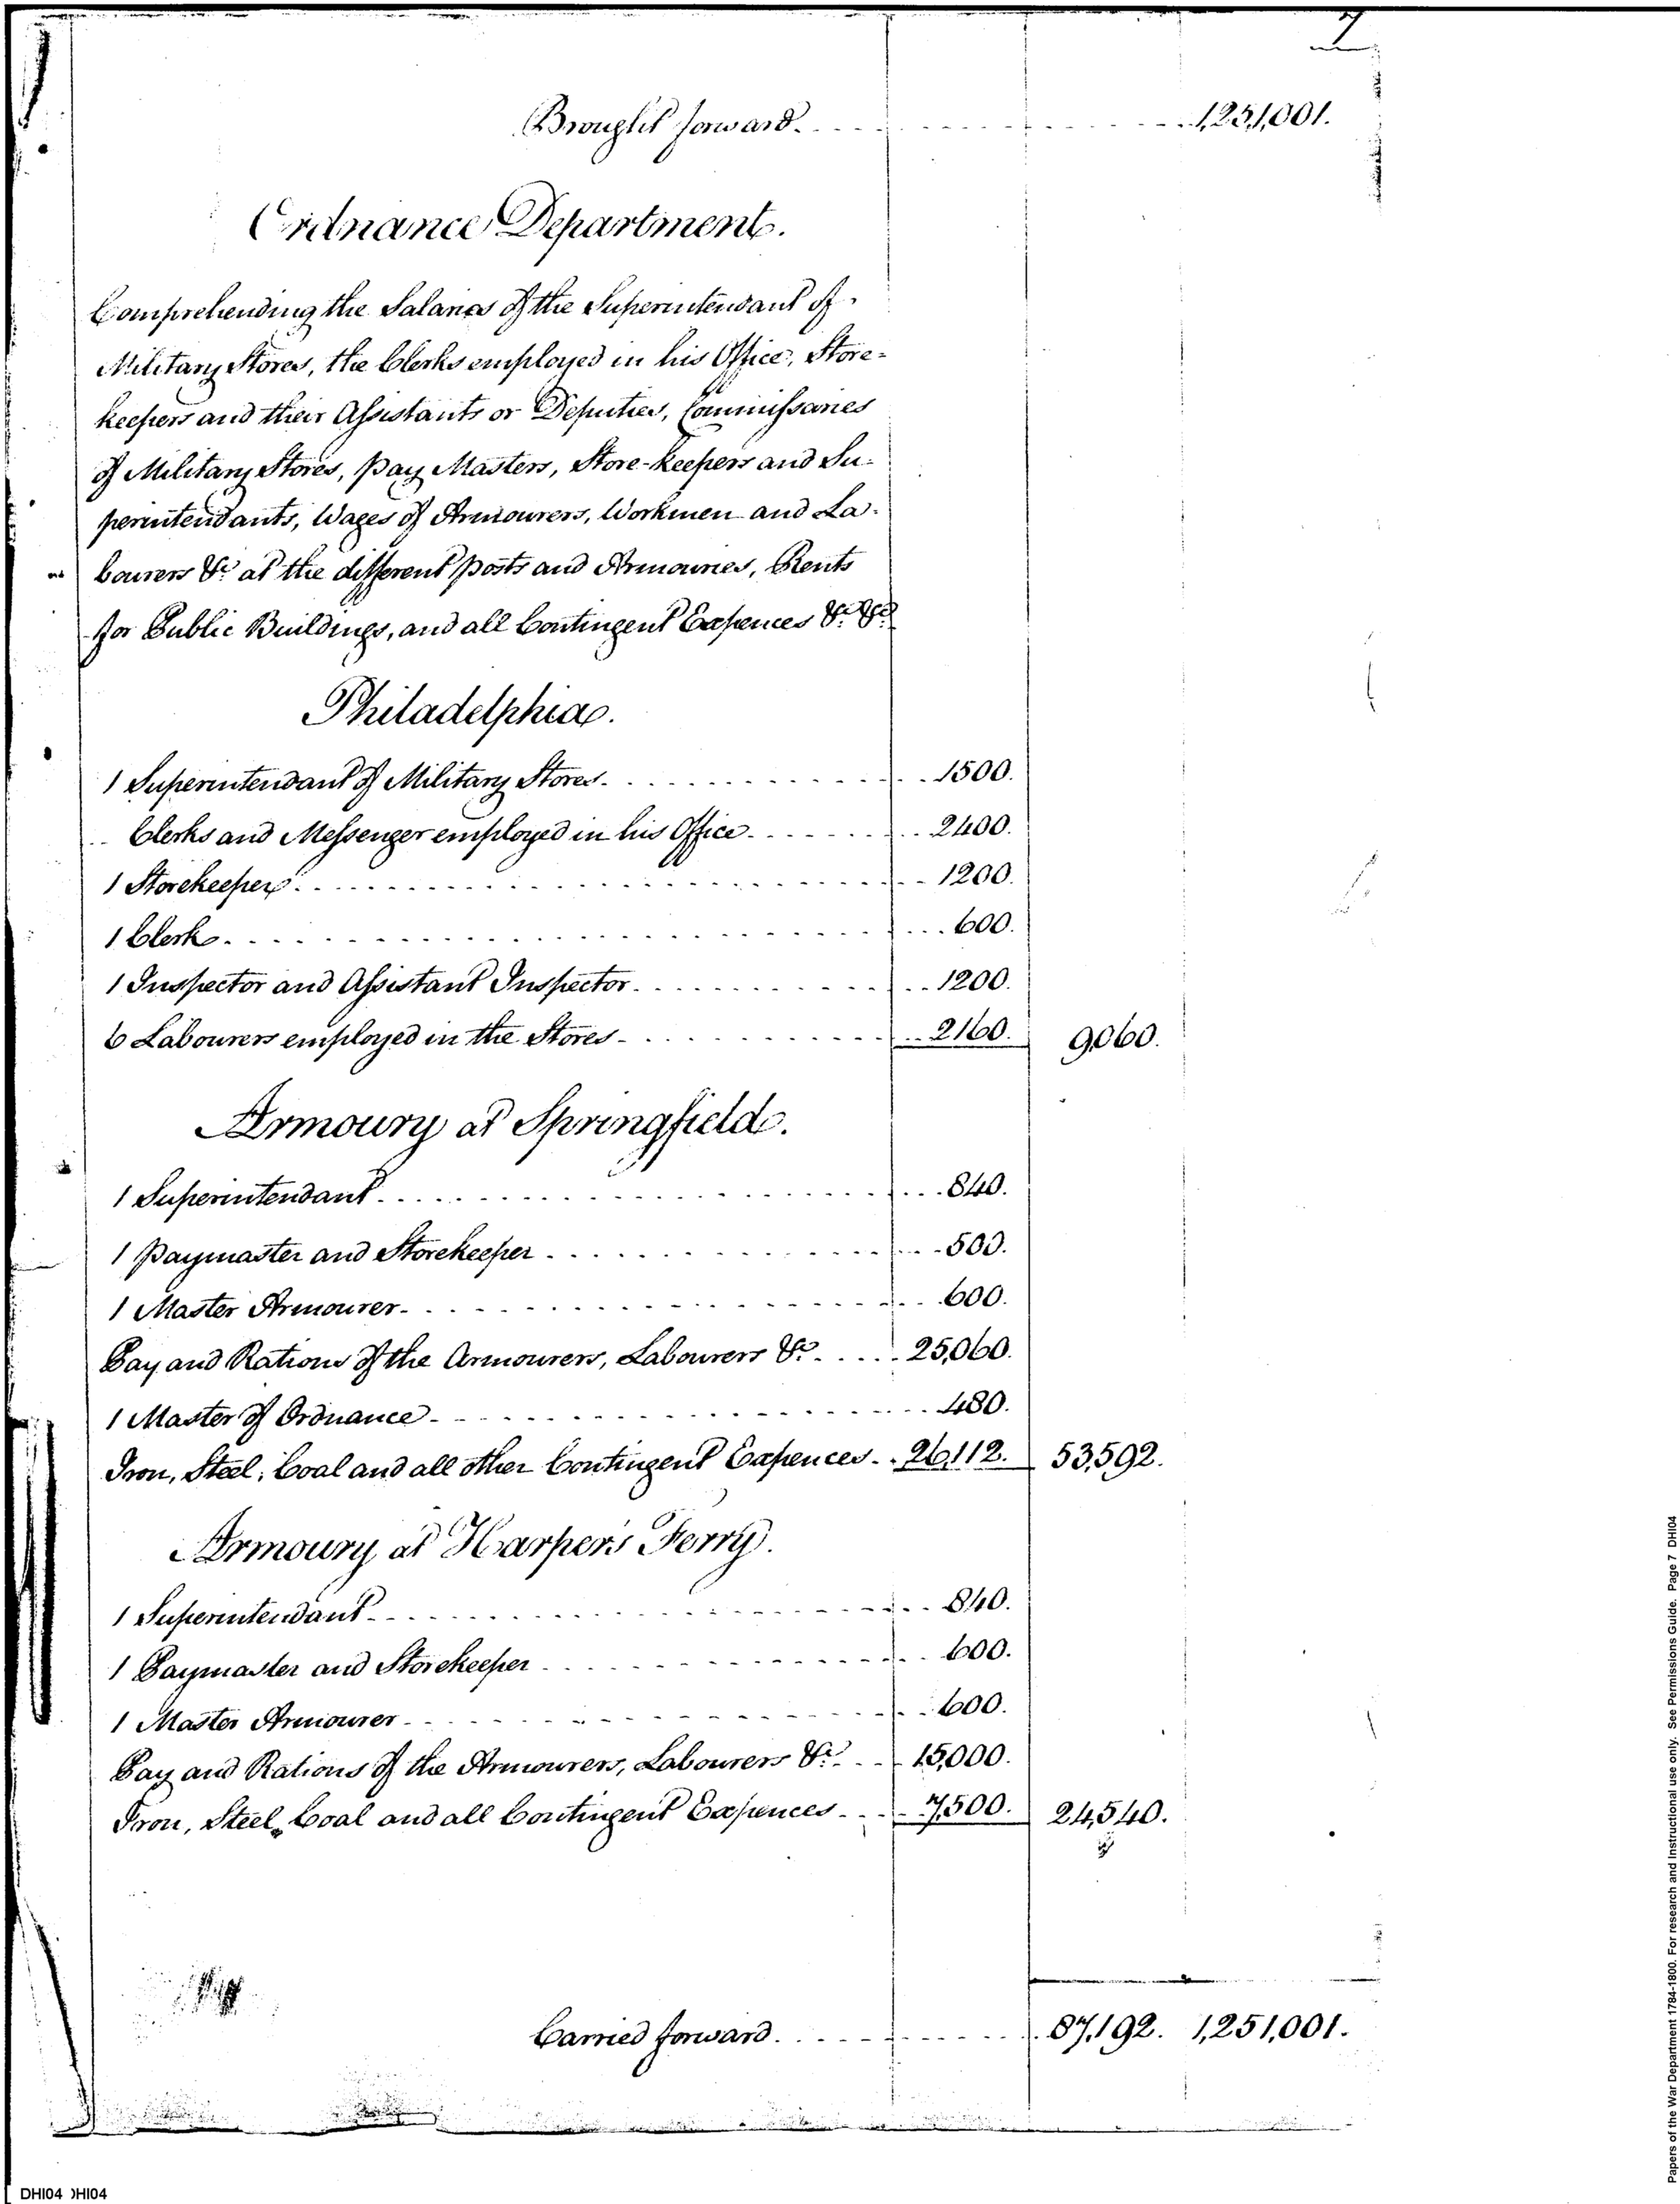 7
Brought forward. 1,251,001.
Ordnance Department.
Comprehending the Salaries of the Superintendant of
Military Stores, the Clerks employed in his Office, Store-
keepers and their Assistants or Deputies, Commissaries
of Military Stores, Pay Masters, Store-keepers and Su-
perintendants, Wages of Armourers, Workmen and La-
bourers &c. at the different posts and Armouries, Rents
for Public Buildings, and all Contingent Expences &c. &c.
Philadelphia.
1 Superintendant of Military Stores. 1500.
Clerks and Messenger employed in his Office. 2400.
1 Storekeeper. 1200.
1 Clerk. 600.
1 Inspector and Assistant Inspector. 1200.
6 Labourers employed in the Stores. 2160. 9,060.
Armoury at Springfield.
1 Superintendant. 840.
1 Paymaster and Storekeeper. 500.
1 Master Armourer. 600.
Pay and Rations of the Armourers, Labourers &c. 25,060.
1 Master of Ordnance. 480.
Iron, Steel, Coal and all other Contingent Expences. 26,112. 53,592.
Armoury at Harper's Ferry.
1 Superintendant. 840.
1 Paymaster and Storekeeper. 600.
1 Master Armourer. 600.
Pay and Rations of the Armourers, Labourers &c. 15,000.
Iron, Steel, Coal and all Contingent Expences. 7,500. 24,540.
Carried forward. 87,192. 1,251,001.
DHI04 DHI04
Papers of the War Department 1784-1800. For research and Instructional use only. See Permissions Guide. Page 7 DHI04